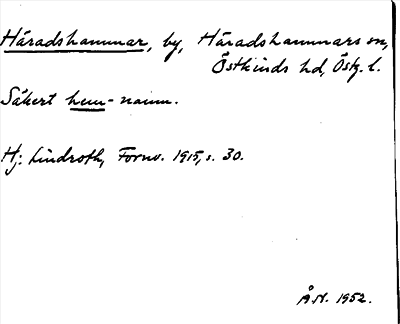 Häradshammar, by, Häradshammars sn,
Östkinds hd, Östg. l.
Säkert hem-namn.
Hj. Lindroth, Fornv. 1915, s. 30.
ÅN. 1952.